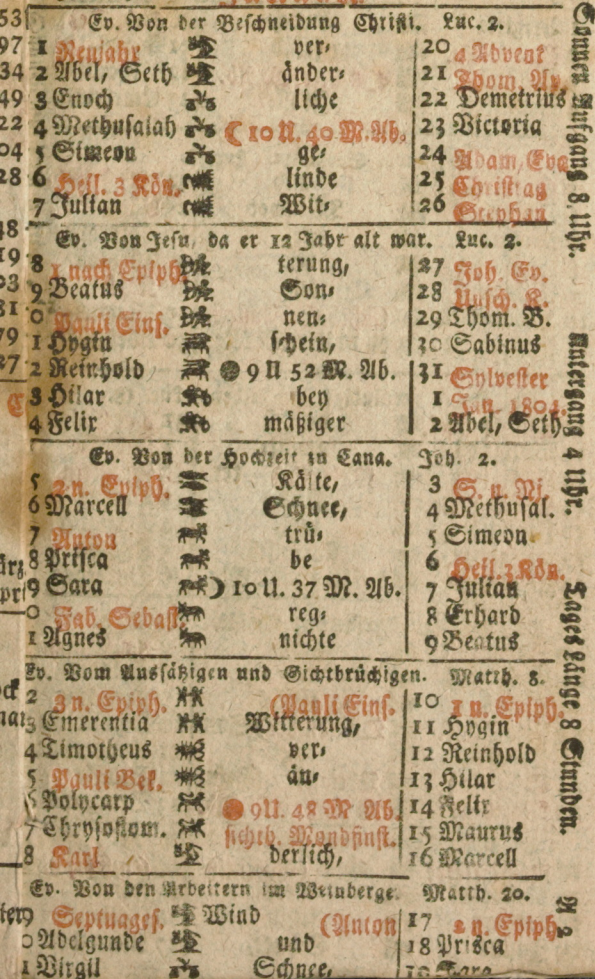 Ev. Von der Beschneidung Christi. Luc. 2.
53
97 1 Neujahr ver⸗ 20 4 Advent
34 2 Abel, Seth änder⸗ 21 Thom. Ap.
49 3 Enoch liche 22 Demetrius
22 4 Methusalah ☾ 10 U. 40 M. Ab. 23 Victoria
04 5 Simeon ge⸗ 24 Adam, Eva
28 6 Heil. 3 Kön. linde 25 Christtag
7 Julian Wit⸗ 26 Stephan
Ev. Von Jesu, da er 12 Jahr alt war. Luc. 2.
48
19 8 1 nach Epiph. terung, 27 Joh. Ev.
03 9 Beatus Son⸗ 28 Unsch. K.
81 0 Pauli Eins. nen⸗ 29 Thom. B.
79 1 Hygin schein, 30 Sabinus
27 2 Reinhold ● 9 U 52 M. Ab. 31 Sylvester
3 Hilar bey 1 Jan. 1804.
4 Felix mäßiger 2 Abel, Seth
Ev. Von der Hochzeit zu Cana. Joh. 2.
5 2 n. Epiph. Kälte, 3 S. n. Nj.
6 Marcell Schnee, 4 Methusal.
7 Anton trü⸗ 5 Simeon
8 Prisca be 6 Heil. 3 Kön.
9 Sara ☽ 10 U. 37 M. Ab. 7 Julian
0 Fab. Sebast. reg⸗ 8 Erhard
1 Agnes nichte 9 Beatus
Ev. Vom Aussätzigen und Gichtbrüchigen. Matth. 8.
2 3 n. Epiph. (Pauli Eins. 10 1 n. Epiph.
3 Emerentia Witterung, 11 Hygin
4 Timotheus ver⸗ 12 Reinhold
5 Pauli Bek. än⸗ 13 Hilar
6 Polycarp ● 9 U. 48 M Ab. 14 Felix
7 Chrysostom. sichtb. Mondfinst. 15 Maurus
8 Karl derlich, 16 Marcell
Ev. Von den Arbeitern im Weinberge. Matth. 20.
9 Septuages. Wind (Anton 17 2 n. Epiph.
0 Adelgunde und 18 Prisca
1 Virgil Schnee, 19 Sara
Sonnen Aufgang 8. Uhr. Untergang 4 Uhr. Tages Länge 8 Stunden.
A 2